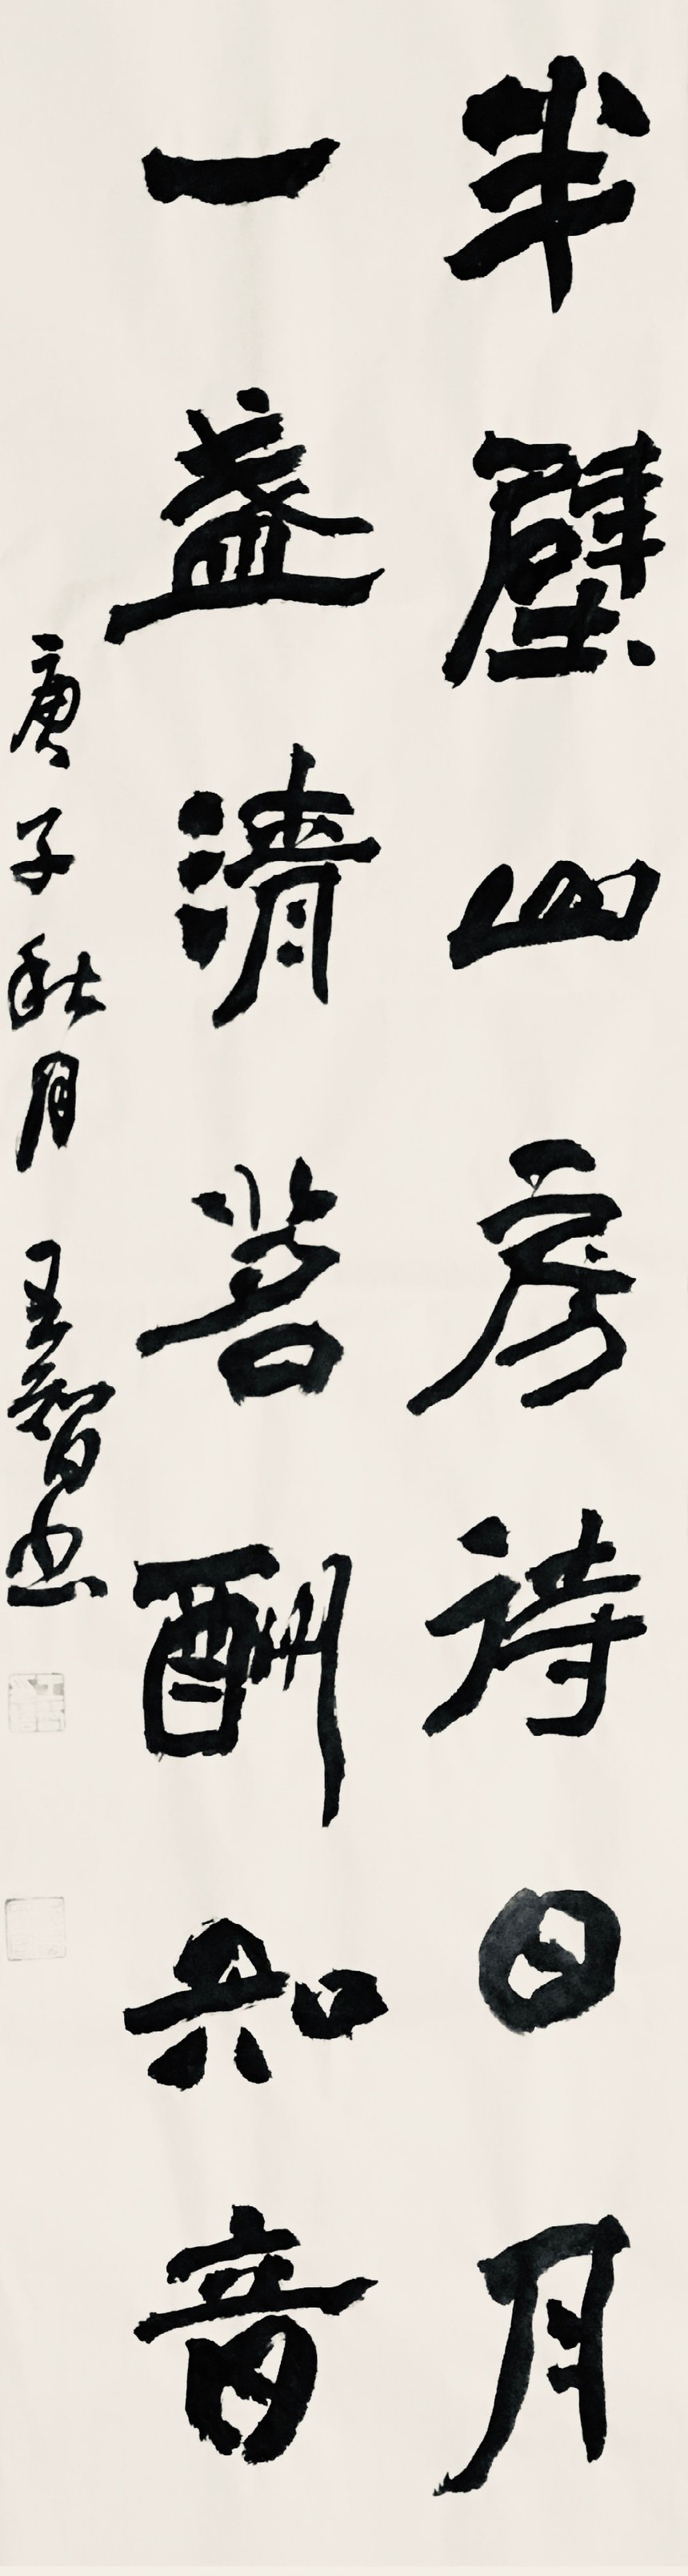 半壁山房詩日月
一盞清茗酬知音
庚子秋月 王智书